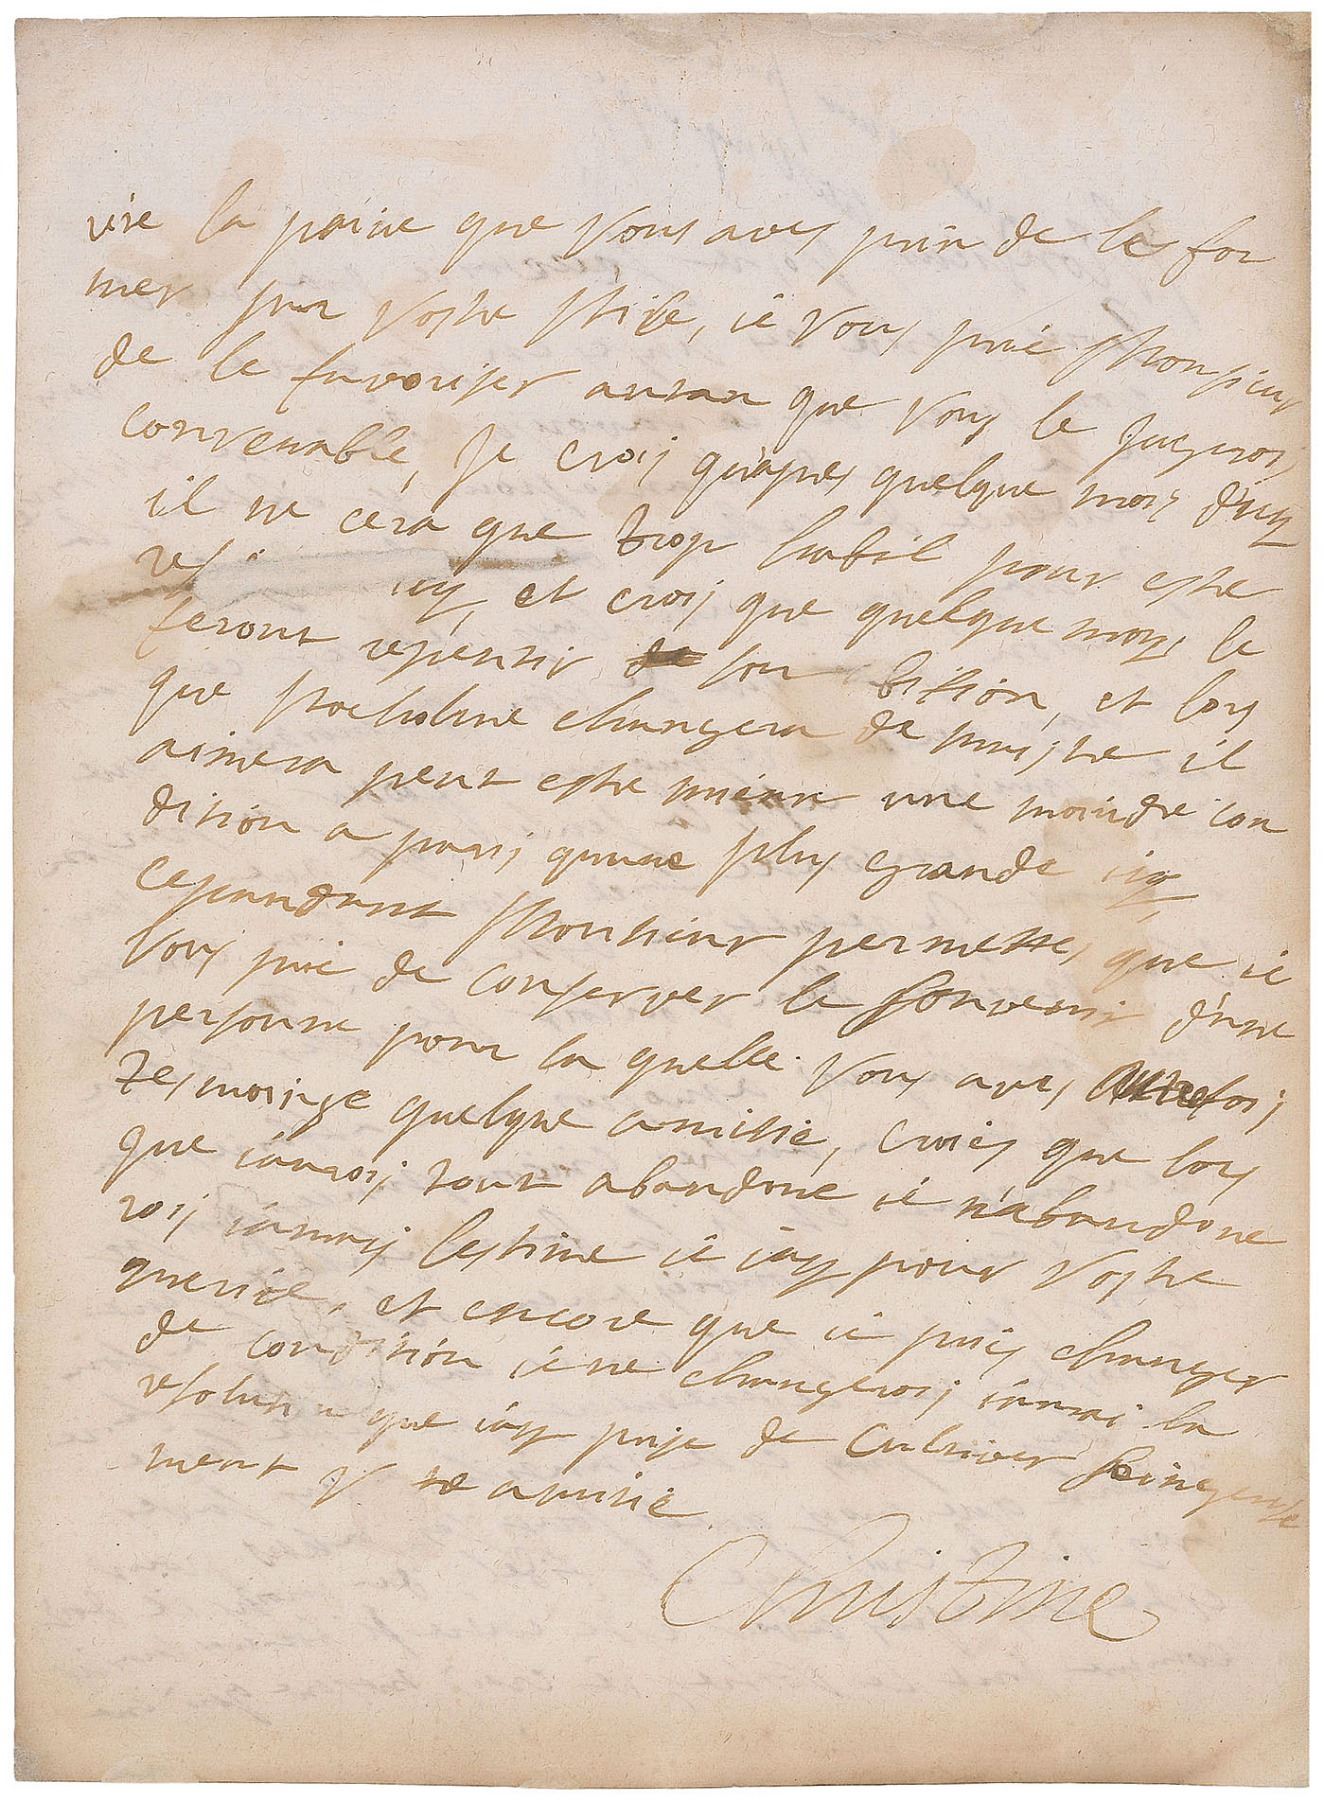 rire la paine que Vous aves prin de le for
mer sur Vostre stile, ie Vous prie Monsieur
de le favoriser autan que Vous le jugerois
convenable, Je crois qu'apres quelque mois d'icy
il ne cera que trop habil pour estre
icy, et crois que quelque mois le
feront repentir son bision, et lors
que changera de maistre il
aimera peut estre mieux une moindre con
dition a paris qunne plus grande icy,
cependant Monsieur permettes que ie
Vous prie de conserver le souvenir d'une
personne pour la quelle Vous aves autrefois
tesmoinge quelque amitie, croies que lors
que iaurois tout abandone ie n'abandone
rois iamais lestime ie iay pour Vostre
et encore que ie puis changer
de condition ie ne changerois iamai la
que iay prise de Cultiver
ment V re amitie
Christine